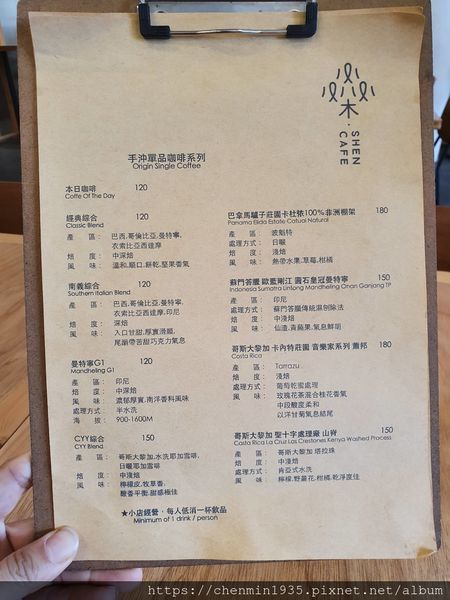 SHEN CAFE
手沖單品咖啡系列
Origin Single Coffee
本日咖啡 120
Coffe Of The Day
經典綜合 120
Classic Blend
產 區: 巴西,哥倫比亞,曼特寧,
衣索比亞西達摩
焙 度: 中深焙
風 味: 溫和,順口,餅乾,堅果香氣
南義綜合 120
Southern Italian Blend
產 區: 巴西,哥倫比亞,曼特寧,
衣索比亞西達摩,印尼
焙 度: 深焙
風 味: 入口甘甜,厚實滑順,
尾韻帶苦甜巧克力氣息
曼特寧G1 120
Mandheling G1
產 區: 印尼
焙 度: 中深焙
風 味: 濃郁厚實,南洋香料風味
處理方式: 半水洗
海 拔: 900-1600M
CYY綜合 150
CYY Blend
產 區: 哥斯大黎加,水洗耶加雪啡,
日曬耶加雪啡
焙 度: 中淺焙
風 味: 檸檬皮,牧草香,
酸香平衡,甜感極佳
巴拿馬驢子莊園卡杜依100%非洲棚架 180
Panama Elida Estate Catuai Natural
產 區: 波魁特
處理方式: 日曬
焙 度: 淺焙
風 味: 熱帶水果,草莓,柑橘
蘇門答臘 歐藍剛江 圓石皇冠曼特寧 150
Indonesia Sumatra Lintong Mandheling Onan Ganjang TP
產 區: 印尼
處理方式: 蘇門答臘傳統濕刨除法
焙 度: 中淺焙
風 味: 仙渣,青蘋果,氣息鮮明
哥斯大黎加 卡內特莊園 音樂家系列 蕭邦 180
Costa Rica
產 區: Tarrazu
焙 度: 淺焙
處理方式: 葡萄乾蜜處理
風 味: 玫瑰花茶混合桂花香氣
中段酸度柔和
以洋甘菊氣息結尾
哥斯大黎加 聖十字處理廠 山脊 150
Costa Rica La Cruz Las Crestones Kenya Washed Process
產 區: 哥斯大黎加 塔拉珠
焙 度: 中淺焙
處理方式: 肯亞式水洗
風 味: 檸檬,野薑花,柑橘,乾淨度佳
★小店經營,每人低消一杯飲品
Minimum of 1 drink / person
https://chenmin1935.pixnet.net/album